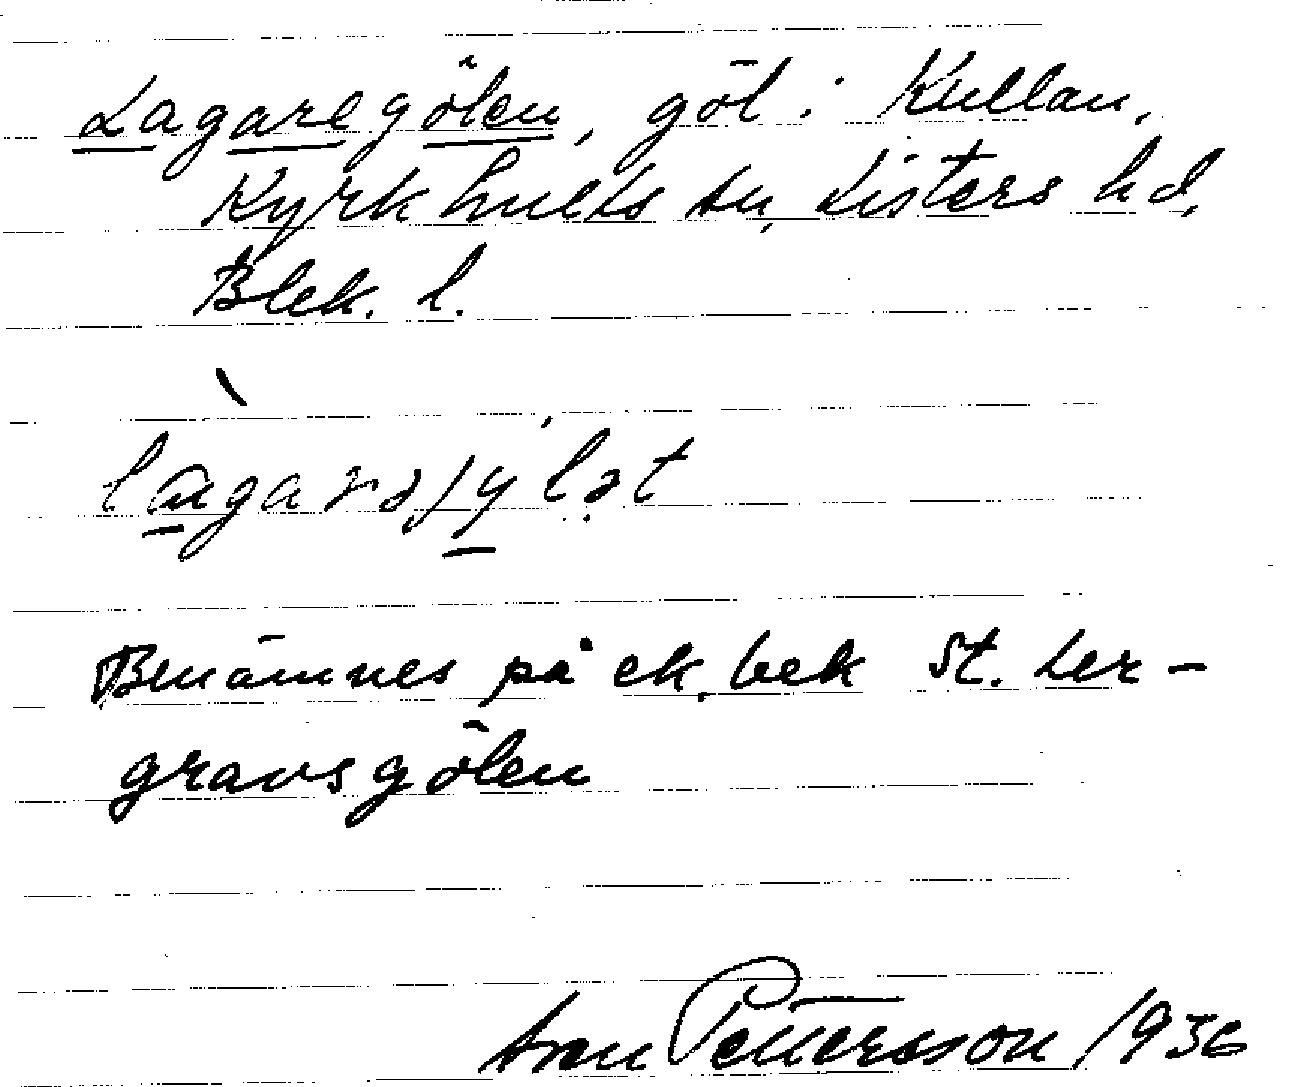 Lagaregölen, göl i Kullan,
Kyrkhults sn, Listers hd,
Blek. l.
Benämnes på ek. bek St. Ler-
gravsgölen
Pettersson 1936